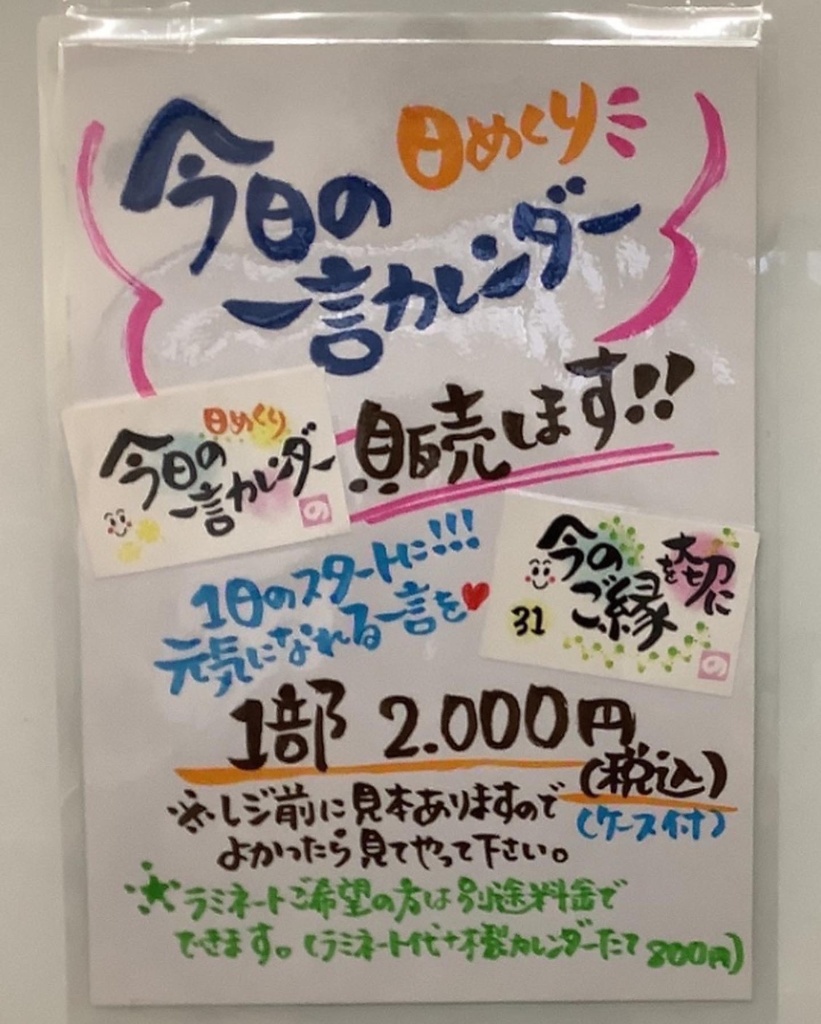 日めくり
今日の
一言カレンダー
販売します!!
日めくり
今日の
一言カレンダー
の
1日のスタートに!!!
元気になれる一言を♥
今の
ご縁
を大切に
31
の
1部 2.000円
(税込)
(ケース付)
※レジ前に見本ありますので
よかったら見てやって下さい。
★ラミネートご希望の方は別途料金で
できます。(ラミネート代+木製カレンダーたて 800円)